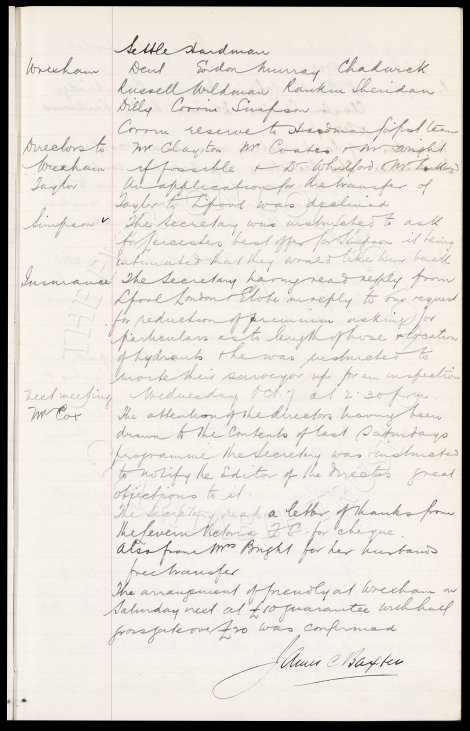 Settle Hardman
Wrexham Dent Gordon Murray Chadwick
Russell Wildman Rankin Sheridan
Dilly Corrin Simpson
Corrin reserve to Hardman for first team
Directors to Wrexham Mr Clayton Mr Coates & Mr Wright
if possible & Dr Whitford
Taylor An application for the transfer of
Taylor to Lpool was declined
Simpson The Secretary was instructed to ask
for Leicesters best offer for Simpson it being
intimated that they would like him back
Insurance The Secretary having read reply from
Lpool London & Globe in reply to our request
for reduction of premium asking for
particulars as to length of hose & location
of hydrants & he was instructed to
invite their surveyor up for an inspection
next meeting Wednesday Oct 7 at 2.30 p.m.
Mr Cox The attention of the directors having been
drawn to the contents of last Saturdays
programme the Secretary was instructed
to notify the Editor of the directors great
objections to it
The Secretary read a letter of thanks from
the Severn Victoria F.C. for cheque.
Also from Mrs Bright for her husbands
free transfer
The arrangement of friendly at Wrexham on
Saturday next at £10 guarantee with half
gross gate over £20 was confirmed
James C Baxter